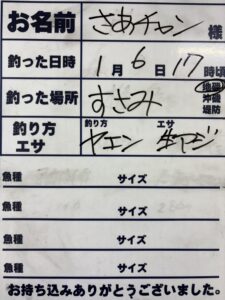 お名前 さあチャン 様
釣った日時 1月6日17時頃
釣った場所 すさみ 地磯 沖磯 堤防
釣り方 エサ 釣り方 ヤエン エサ 生アジ
魚種 サイズ
魚種 サイズ
魚種 サイズ
魚種 サイズ
お持ち込みありがとうございました。